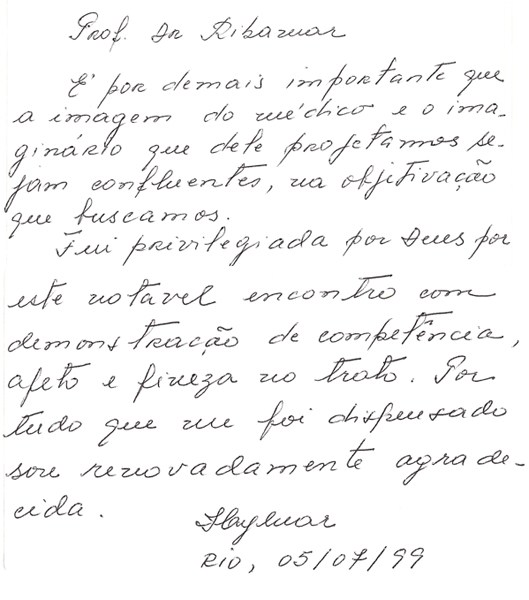 Prof. Dr Ribamar
É por demais importante que
a imagem do médico e o ima-
ginário que dele projetamos se-
jam confluentes, na objetivação
que buscamos.
Fui privilegiada por Deus por
este notável encontro com
demonstração de competência,
afeto e fineza no trato. Por
tudo que me foi dispensado
sou renovadamente agrade-
cida.
RIO, 05/07/99